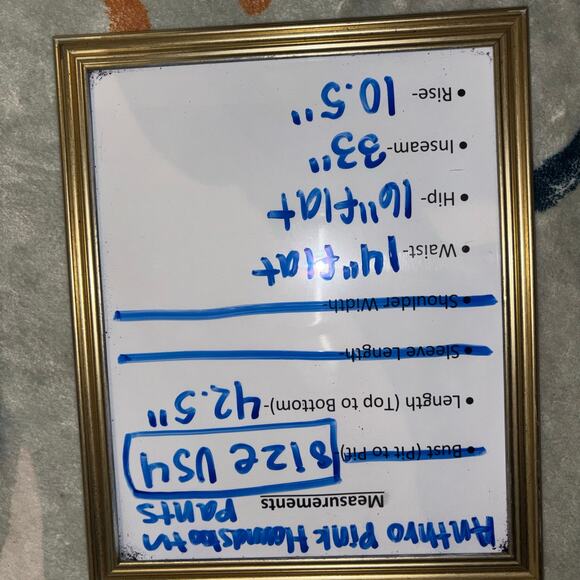 Anthro Pink Houndstooth
Pants
Measurements
• Bust (Pit to Pit)- Size US4
• Length (Top to Bottom)- 42.5"
• Sleeve Length-
• Shoulder Width-
• Waist- 14" flat
• Hip- 16" flat
• Inseam- 33"
• Rise- 10.5"